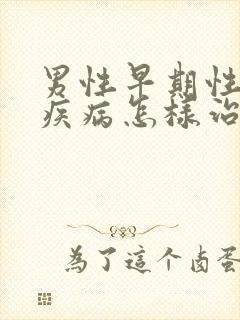 男性早期性
疾病怎样治
為了這个卤蛋